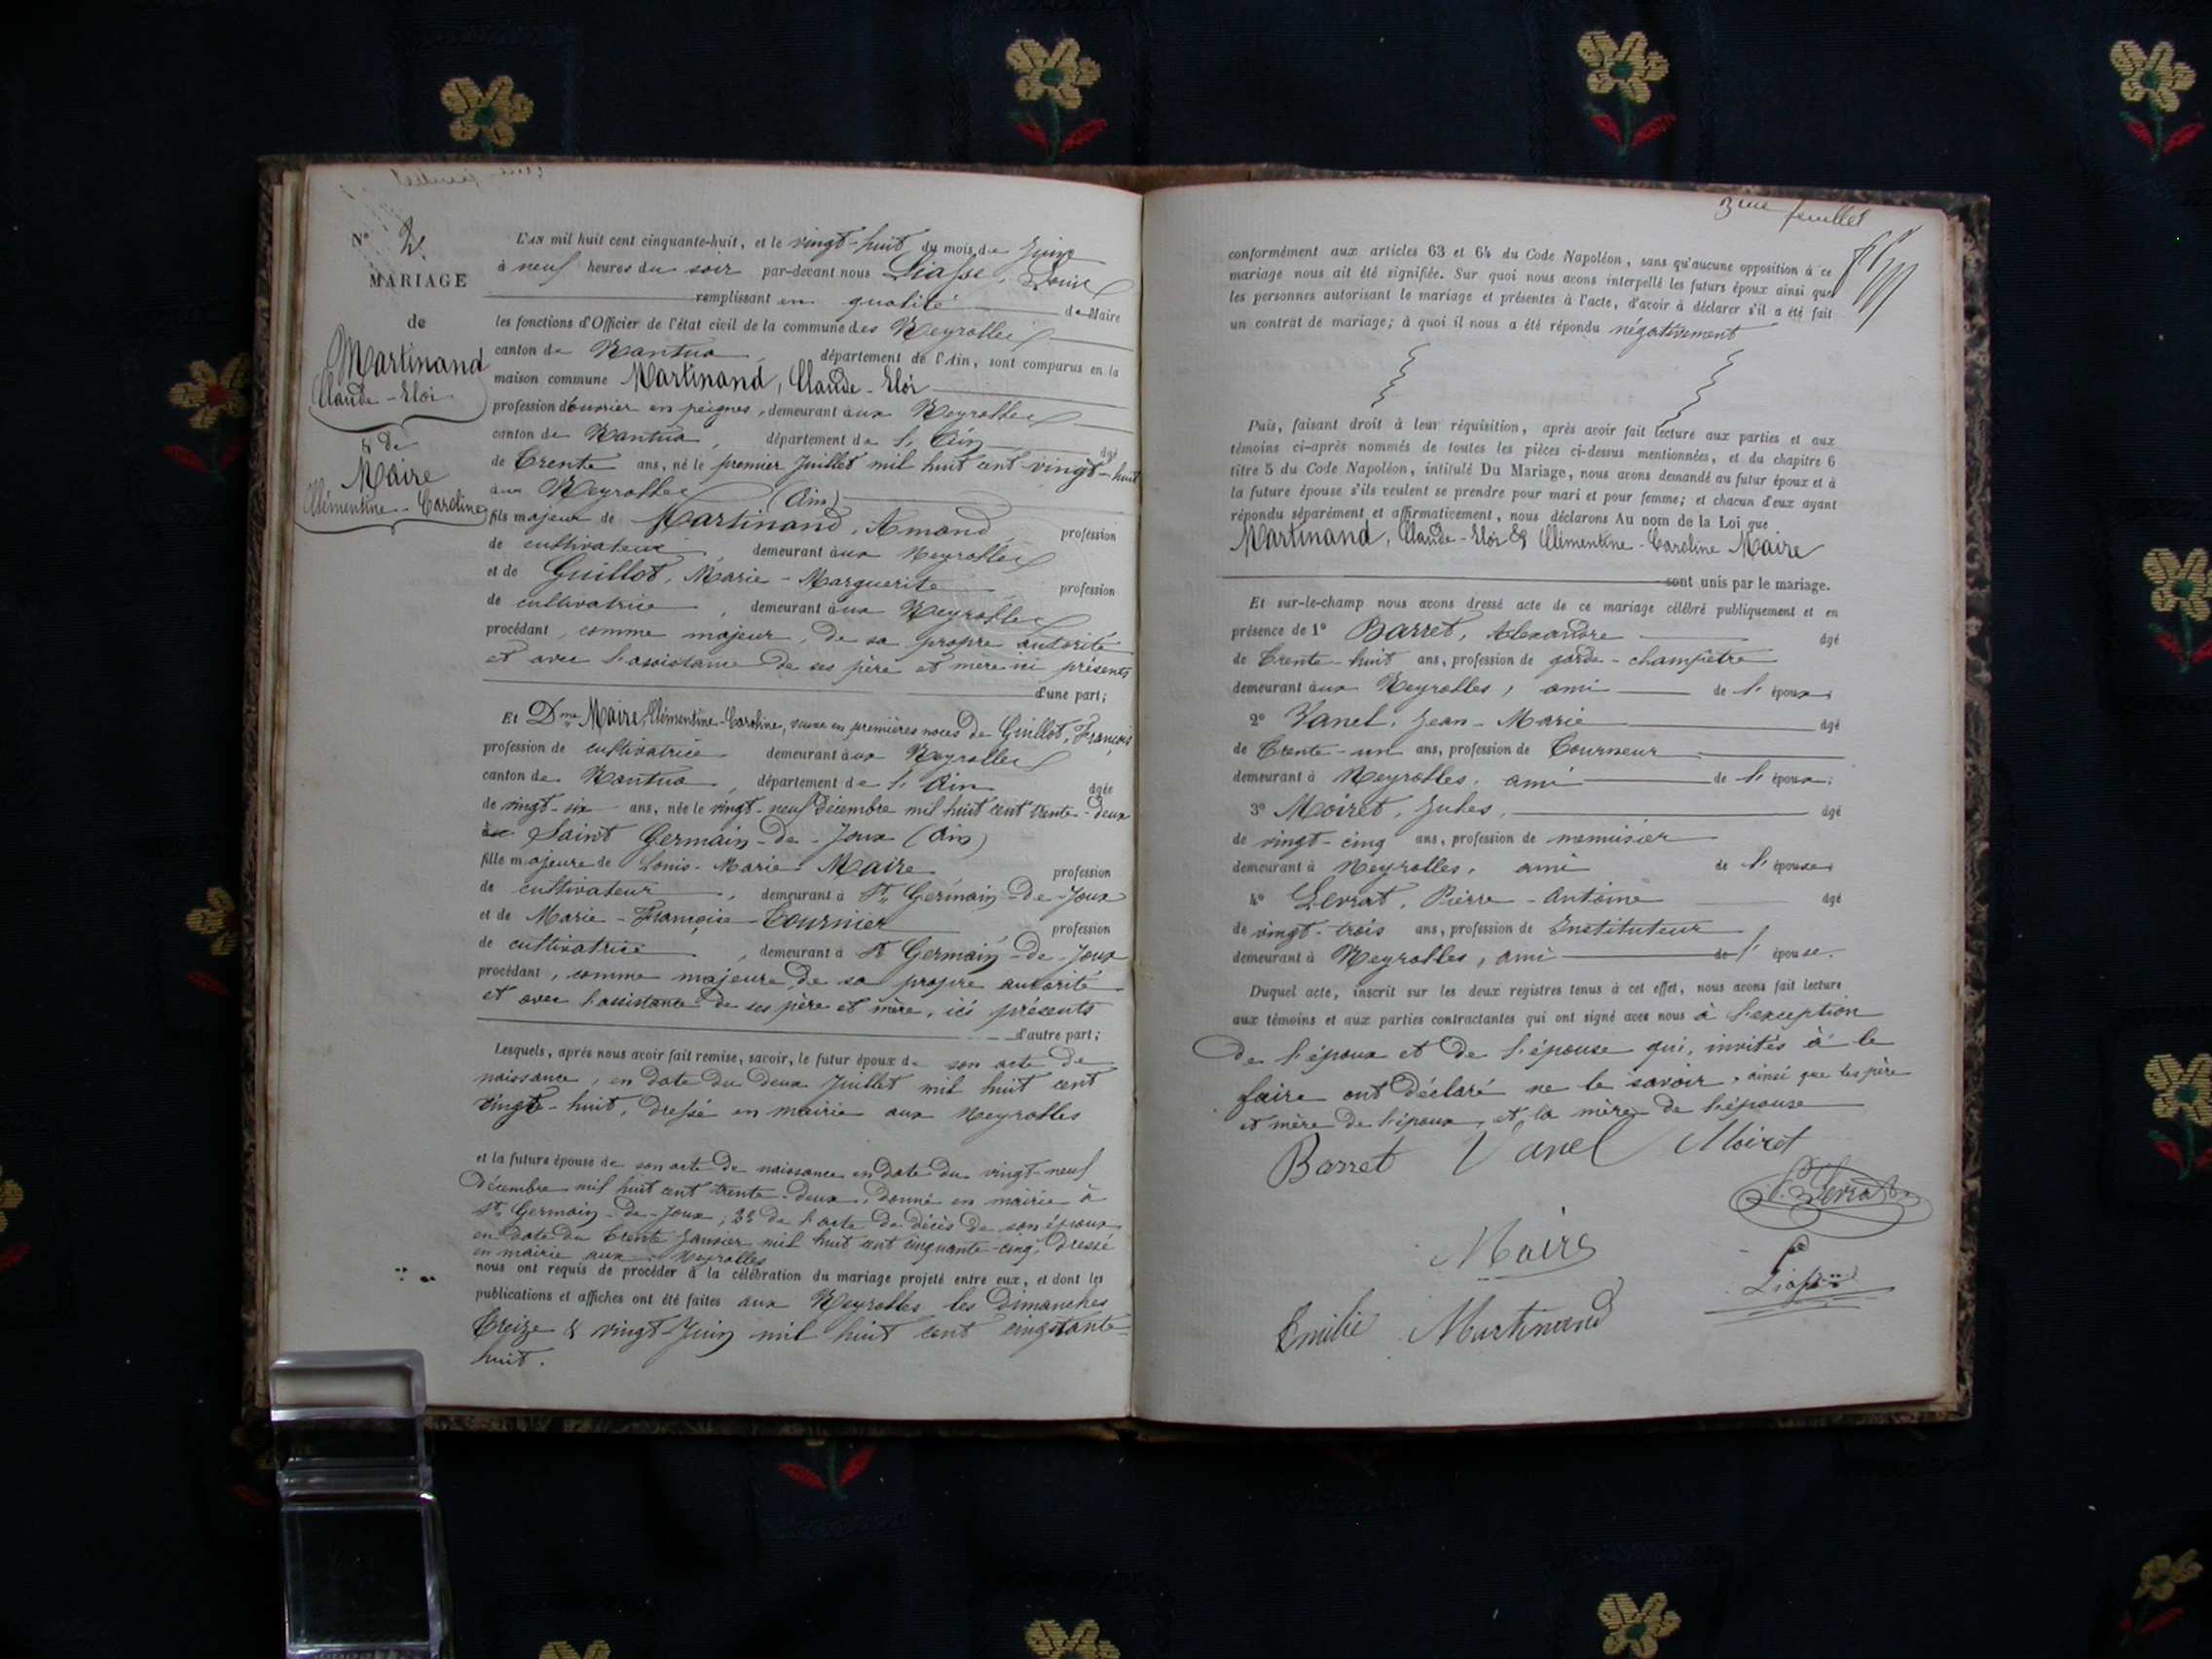 N° 2.
MARIAGE
de
Martinand
Claude-Eloi
& de
Maire
Clémentine-Caroline
L'AN mil huit cent cinquante-huit, et le vingt-huit du mois de Juin
à neuf heures du soir par-devant nous Liasse, Louis
remplissant en qualité de Maire
les fonctions d'Officier de l'état civil de la commune des Neyrolles
canton de Nantua, département de l'Ain, sont comparus en la
maison commune Martinand, Claude-Eloi
profession d'ouvrier en peignes, demeurant aux Neyrolles
canton de Nantua, département de l'Ain âgé
de trente ans, né le premier Juillet mil huit cent vingt-huit
aux Neyrolles (Ain)
fils majeur de Martinand, Amand, profession
de cultivateur, demeurant aux Neyrolles
et de Guillot, Marie-Marguerite, profession
de cultivatrice, demeurant aux Neyrolles
procédant, comme majeur, de sa propre autorité
et avec l'assistance de ses père et mère ici présents
d'une part;
Et Dme Maire, Clémentine-Caroline, veuve en premières noces de Guillot, François
profession de cultivatrice demeurant aux Neyrolles
canton de Nantua, département de l'Ain âgée
de vingt-six ans, née le vingt-neuf décembre mil huit cent trente-deux
à Saint Germain-de-Joux (Ain)
fille majeure de Louis-Marie Maire, profession
de cultivateur, demeurant à St Germain-de-Joux
et de Marie-Françoise Tournier, profession
de cultivatrice, demeurant à St Germain-de-Joux
procédant, comme majeure, de sa propre autorité
et avec l'assistance de ses père et mère, ici présents
d'autre part;
Lesquels, après nous avoir fait remise, savoir, le futur époux de son acte de
naissance, en date du deux Juillet mil huit cent
vingt-huit, dressé en mairie aux Neyrolles
et la future épouse de son acte de naissance en date du vingt-neuf
Décembre mil huit cent trente-deux, donné en mairie à
St Germain-de-Joux; 2° de l'acte de décès de son époux
en date du trente Janvier mil huit cent cinquante-cinq, dressé
en mairie aux Neyrolles
nous ont requis de procéder à la célébration du mariage projeté entre eux, et dont les
publications et affiches ont été faites aux Neyrolles les Dimanches
treize & vingt Juin mil huit cent cinquante-
huit.
3me feuillet
conformément aux articles 63 et 64 du Code Napoléon, sans qu'aucune opposition à ce
mariage nous ait été signifiée. Sur quoi nous avons interpellé les futurs époux ainsi que
les personnes autorisant le mariage et présentes à l'acte, d'avoir à déclarer s'il a été fait
un contrat de mariage; à quoi il nous a été répondu négativement
Puis, faisant droit à leur réquisition, après avoir fait lecture aux parties et aux
témoins ci-après nommés de toutes les pièces ci-dessus mentionnées, et du chapitre 6
titre 5 du Code Napoléon, intitulé Du Mariage, nous avons demandé au futur époux et à
la future épouse s'ils veulent se prendre pour mari et pour femme; et chacun d'eux ayant
répondu séparément et affirmativement, nous déclarons Au nom de la Loi que
Martinand, Claude-Eloi & Clémentine-Caroline Maire
sont unis par le mariage.
Et sur-le-champ nous avons dressé acte de ce mariage célébré publiquement et en
présence de 1° Barret, Alexandre âgé
de trente-huit ans, profession de garde-champêtre
demeurant aux Neyrolles, ami de l'époux;
2° Vanel, Jean-Marie âgé
de trente-un ans, profession de Tourneur
demeurant à Neyrolles, ami de l'époux;
3° Moiret, Jules, âgé
de vingt-cinq ans, profession de menuisier
demeurant à Neyrolles, ami de l'épouse
4° Levrat, Pierre-Antoine âgé
de vingt-trois ans, profession de Instituteur
demeurant à Neyrolles, ami de l'épouse.
Duquel acte, inscrit sur les deux registres tenus à cet effet, nous avons fait lecture
aux témoins et aux parties contractantes qui ont signé avec nous à l'exception
de l'époux et de l'épouse qui, invités à le
faire ont déclaré ne le savoir, ainsi que les père
et mère de l'époux, et la mère de l'épouse
Barret Vanel Moiret
Levrat
Maire
Liasse
Emilie Martinand